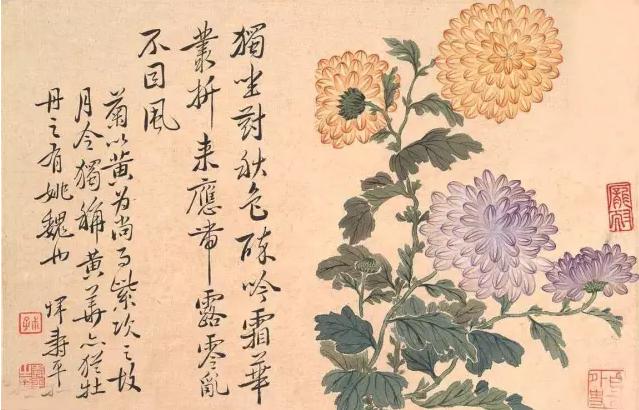 獨坐對秋色醉吟霜華
叢折来應帶露零亂
不因風
菊以黄为尚而紫次之故
月令獨稱黄華亦猶牡
丹之有姚魏也
惲壽平